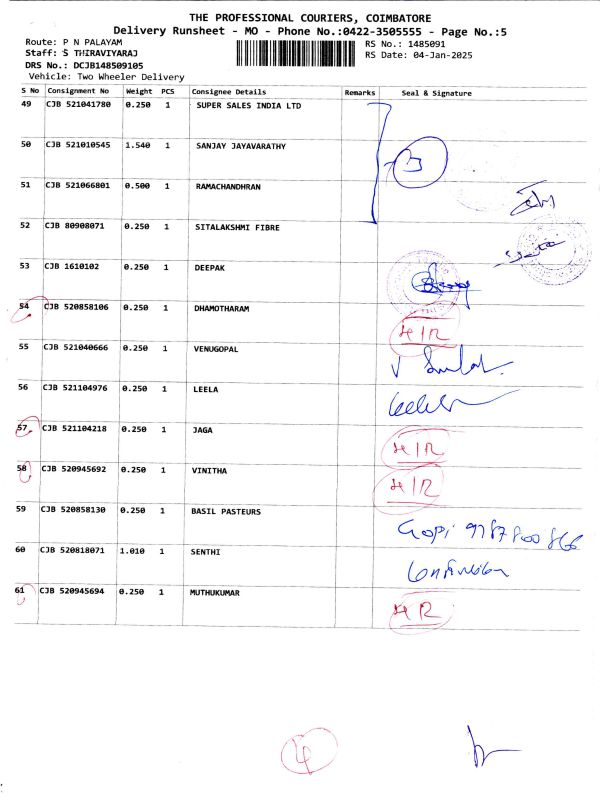 THE PROFESSIONAL COURIERS, COIMBATORE
Delivery Runsheet - MO - Phone No.:0422-3505555 - Page No.:5
Route: P N PALAYAM RS No.: 1485091
Staff: S THIRAVIYARAJ RS Date: 04-Jan-2025
DRS No.: DCJB148509105
Vehicle: Two Wheeler Delivery
S No Consignment No Weight PCS Consignee Details Remarks Seal & Signature
49 CJB 521041780 0.250 1 SUPER SALES INDIA LTD
50 CJB 521010545 1.540 1 SANJAY JAYAVARATHY
51 CJB 521066801 0.500 1 RAMACHANDHRAN
52 CJB 80908071 0.250 1 SITALAKSHMI FIBRE
53 CJB 1610102 0.250 1 DEEPAK
54 CJB 520858106 0.250 1 DHAMOTHARAM
55 CJB 521040666 0.250 1 VENUGOPAL
56 CJB 521104976 0.250 1 LEELA
57 CJB 521104218 0.250 1 JAGA
58 CJB 520945692 0.250 1 VINITHA
59 CJB 520858130 0.250 1 BASIL PASTEURS Gopi
60 CJB 520818071 1.010 1 SENTHI
61 CJB 520945694 0.250 1 MUTHUKUMAR
4